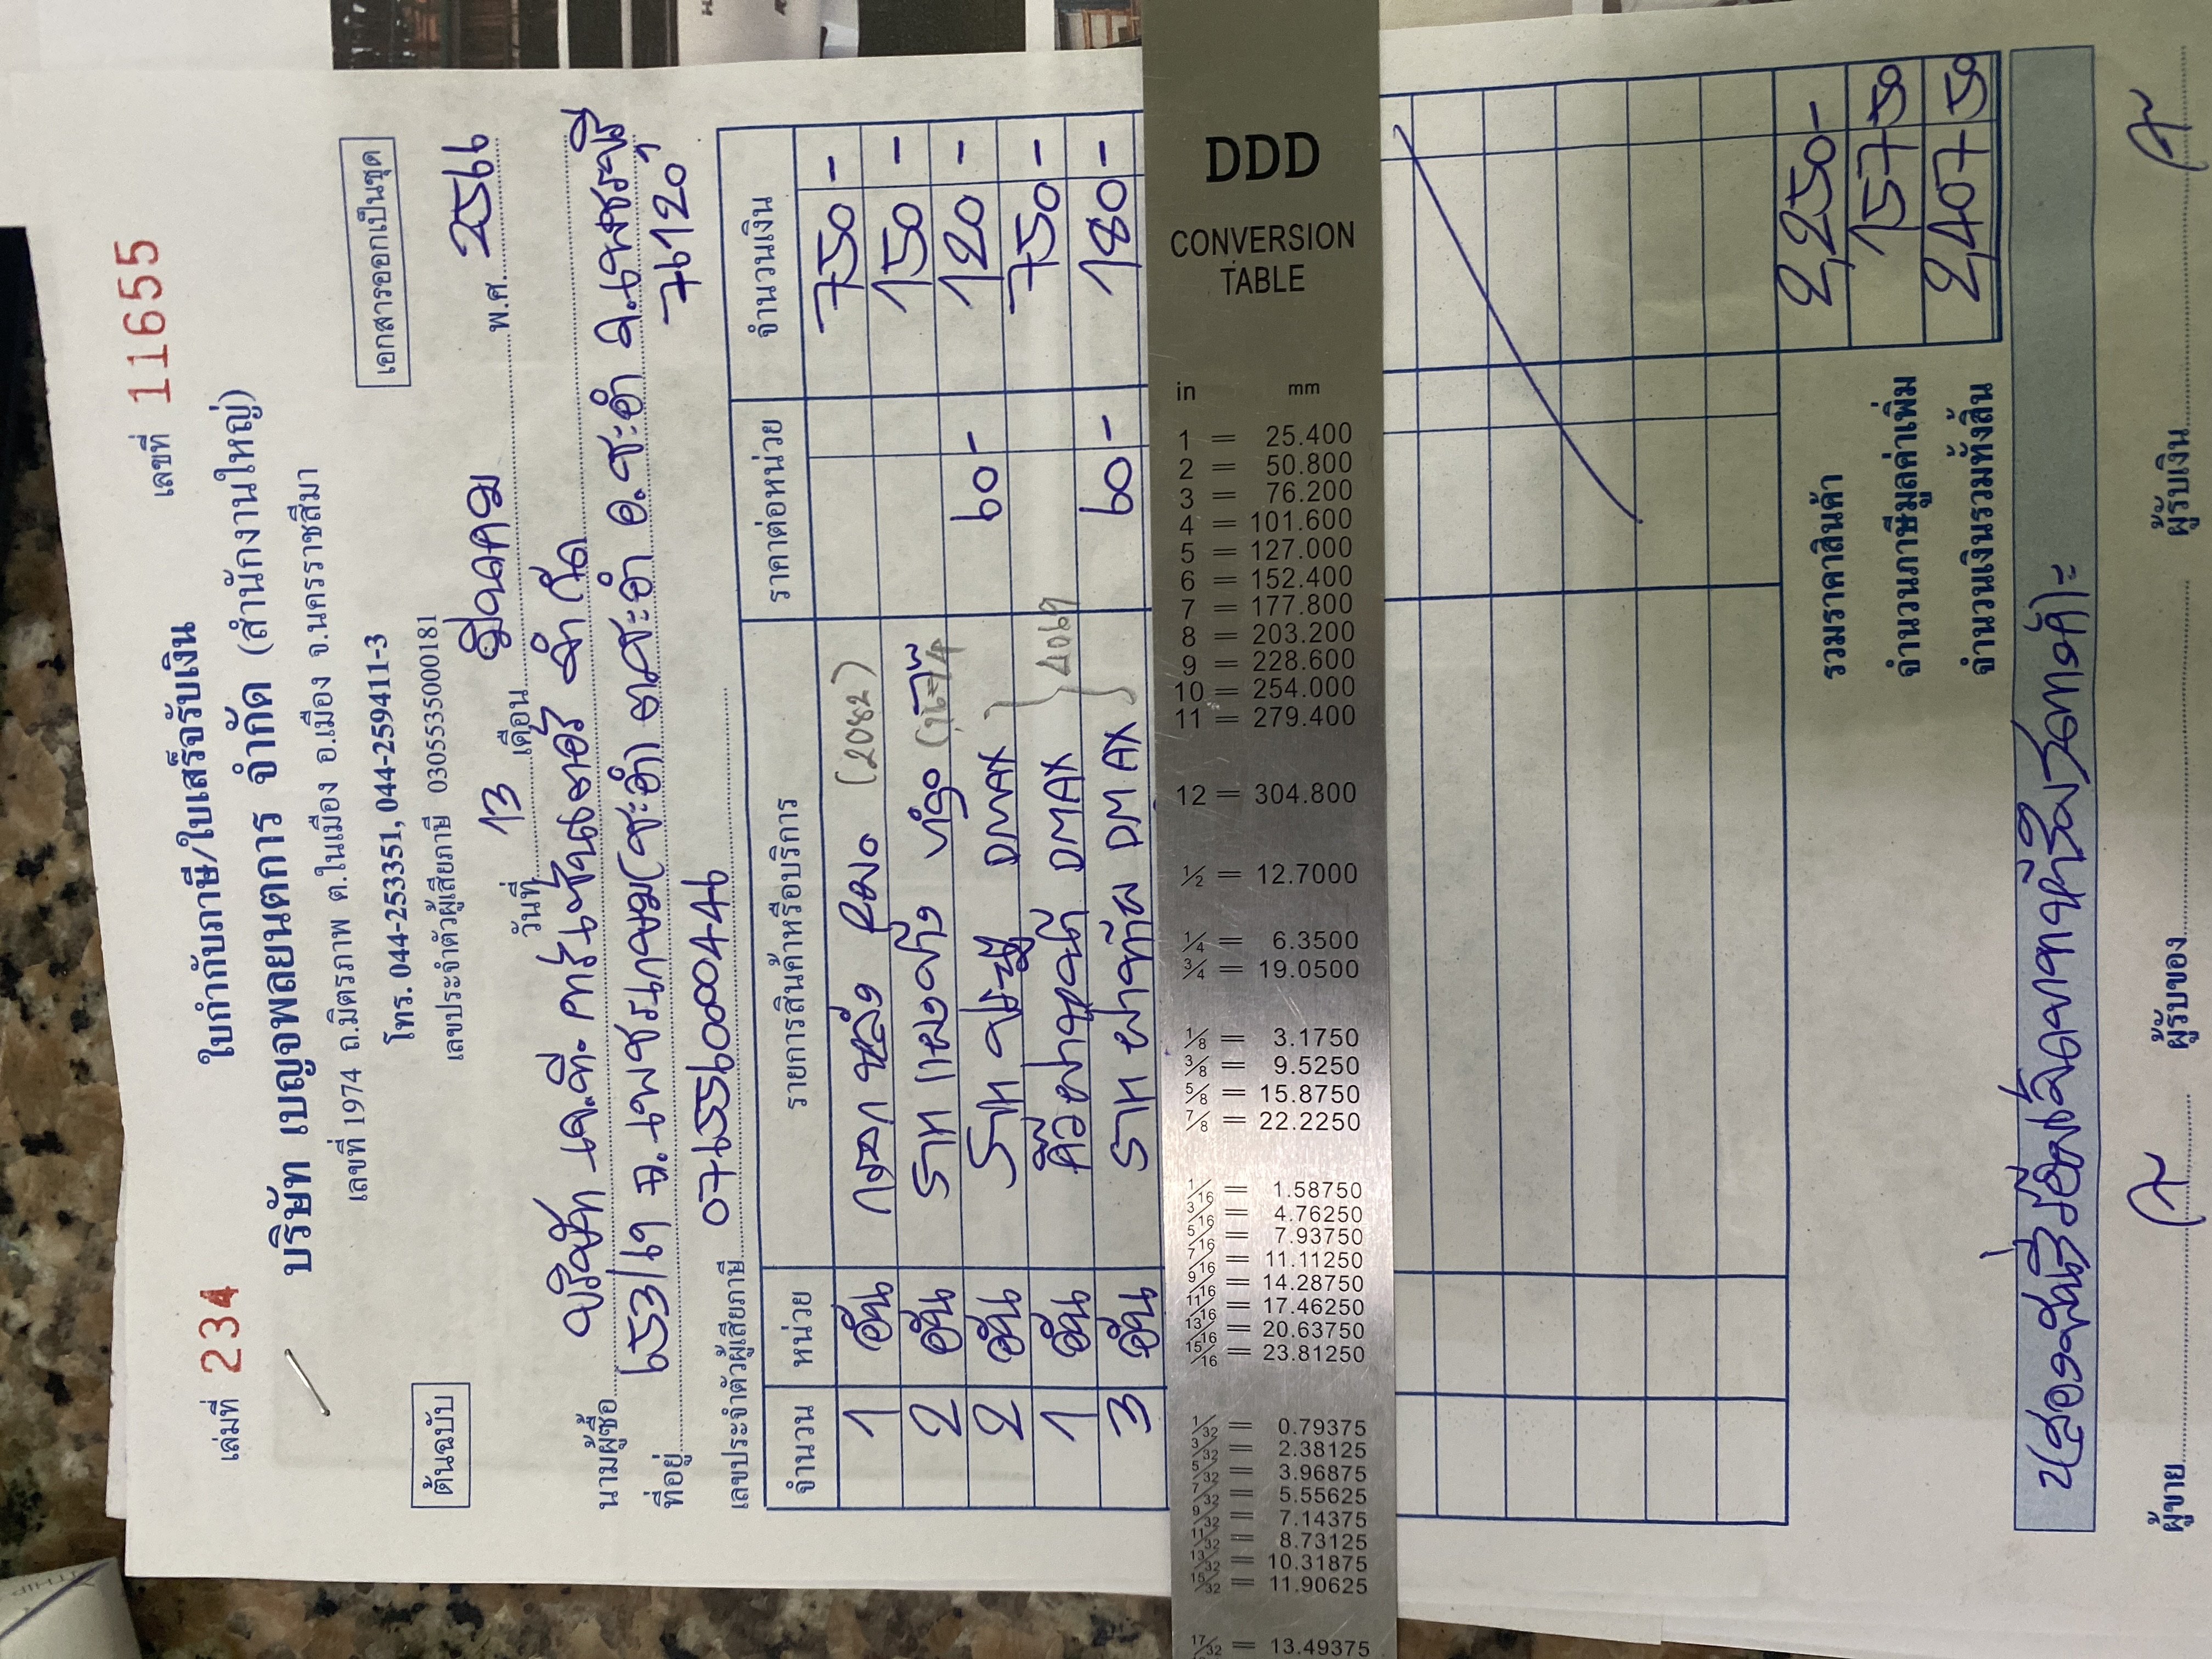 เล่มที่ 234
เลขที่ 11655
ใบกำกับภาษี/ใบเสร็จรับเงิน
บริษัท เบญจพลยนตการ จำกัด (สำนักงานใหญ่)
เลขที่ 1974 ถ.มิตรภาพ ต.ในเมือง อ.เมือง จ.นครราชสีมา
โทร. 044-253351, 044-259411-3
เลขประจำตัวผู้เสียภาษี 0305535000181
ต้นฉบับ
เอกสารออกเป็นชุด
วันที่ 13 เดือน มีนาคม พ.ศ. 2566
นามผู้ซื้อ บริษัท เจ.ที. จำกัด
ที่อยู่ 653/ ถ.เพชรเกษม (ชะอำ) ต.ชะอำ อ.ชะอำ จ.เพชรบุรี
76120
เลขประจำตัวผู้เสียภาษี 0765560000446
จำนวน หน่วย รายการสินค้าหรือบริการ ราคาต่อหน่วย จำนวนเงิน
1 อัน หลัง (2082) 750 -
2 อัน 150 -
2 อัน DMAX 60 - 120 -
1 อัน DMAX 4069 750 -
3 อัน DMAX 60 - 180 -
รวมราคาสินค้า 2,250 -
จำนวนภาษีมูลค่าเพิ่ม 157 50
จำนวนเงินรวมทั้งสิ้น 2,407 50
(สองพันสี่ร้อยเจ็ดบาทห้าสิบสตางค์)
ผู้ขาย ผู้รับของ ผู้รับเงิน
DDD
CONVERSION
TABLE
in mm
1 = 25.400
2 = 50.800
3 = 76.200
4 = 101.600
5 = 127.000
6 = 152.400
7 = 177.800
8 = 203.200
9 = 228.600
10 = 254.000
11 = 279.400
12 = 304.800
1/2 = 12.7000
1/4 = 6.3500
3/4 = 19.0500
1/8 = 3.1750
3/8 = 9.5250
5/8 = 15.8750
7/8 = 22.2250
1/16 = 1.58750
3/16 = 4.76250
5/16 = 7.93750
7/16 = 11.11250
9/16 = 14.28750
11/16 = 17.46250
13/16 = 20.63750
15/16 = 23.81250
1/32 = 0.79375
3/32 = 2.38125
5/32 = 3.96875
7/32 = 5.55625
9/32 = 7.14375
11/32 = 8.73125
13/32 = 10.31875
15/32 = 11.90625
17/32 = 13.49375